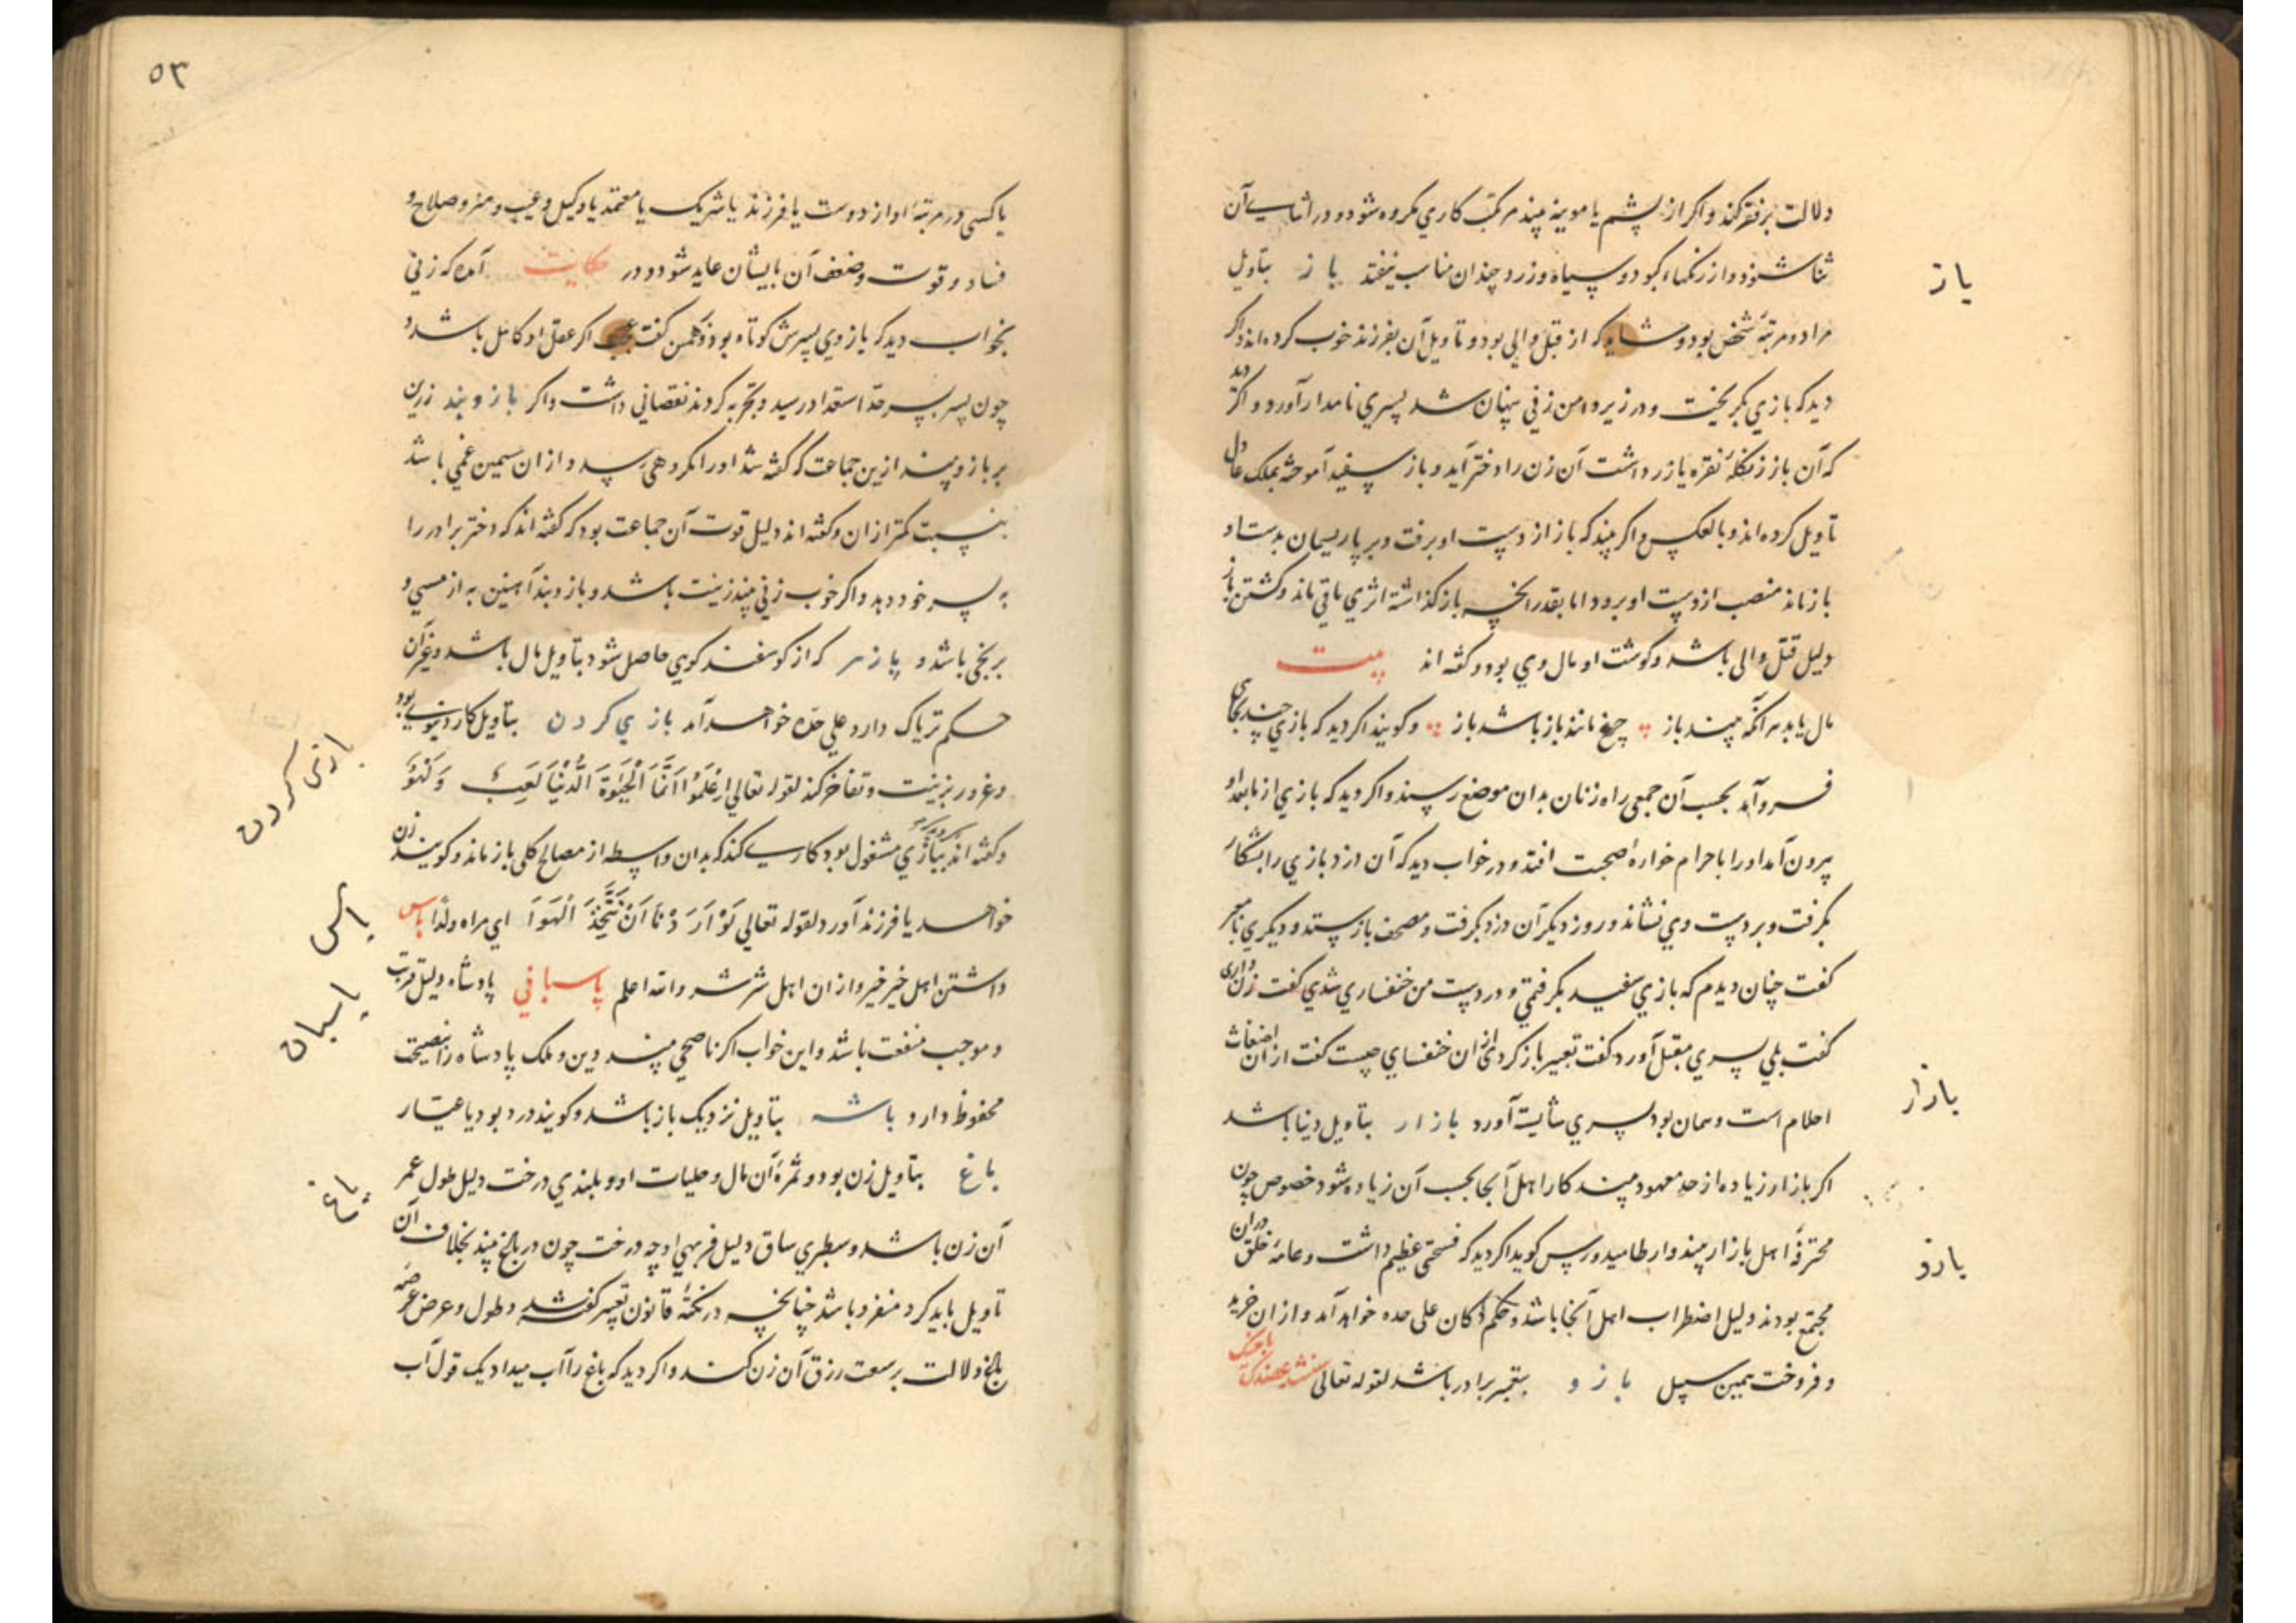 دلالت بر فقر کند و اگر از پشم یا مویینه بیند مرتکب کاری مکروه شود و در اثنای آن
ثنا شنود و از رنگها، کبود و سیاه و زرد چندان مناسب نیفتد باز بتأویل
مراد و مرتبهٔ شخص بود و که از قبل والی بود و تأویل آن بفرزند خوب کرده‌اند و اگر
دید که بازی بگریخت و در زیر دامن زنی پنهان شد پسری نامدار آورد و اگر دید
که آن باز زنگلهٔ نقره یا زر داشت آن زن را دختر آید و باز سفید آموخته بملک عادل
تأویل کرده‌اند و بالعکس و اگر بیند که باز از دست او برفت و پر یا ریسمان بدست او
باز ماند منصب از دست او برود اما بقدر آنچه باز گذاشته اثری باقی ماند و کشتن باز
دلیل قتل والی باشد و گوشت او مال وی بود و گفته‌اند بیت
مال یابد هر آنکه بیند باز چرغ مانند باز باشد باز و گویند اگر دید که بازی چند بجای
فرو آمد بحسب آن جمعی راه زنان بدان موضع رسند و اگر دید که بازی از
بیرون آمد او را با حرام خواره صحبت افتد و در خواب دید که آن دزد بازی را بشکار
بگرفت و بر دست وی نشاند و روز دیگر آن دزد بگرفت و مصحف باز ستد و دیگری با معبر
گفت چنان دیدم که بازی سفید بگرفتمی و در دست من خنفساری شدی گفت زن داری
گفت بلی پسری مقبل آورد گفت تعبیر باز کردی از آن خنفسای چیست گفت از آن اضغاث
احلام است و همان بود پسری شایسته آورد بازار بتأویل دنیا باشد
اگر بازار زیاده از حد معهود بیند کار اهل آنجا بحسب آن زیاده شود خصوص چون
محترفهٔ اهل بازار بیند و ارطامیدورس گوید اگر دید که فسحتی عظیم داشت و عامهٔ خلق در آن
مجتمع بودند دلیل اضطراب اهل آنجا باشد و حکم دکان علی حده خواهد آمد و از آن خرید
و فروخت همین سبیل بازو بتعبیر برادر باشد لقوله تعالی سنشد عضدک باخیک
باز
بازار
بازو
۵۳
یا کسی در مرتبهٔ او از دوست یا فرزند یا شریک یا معتمد یا وکیل و عیب و هنر و صلاح و
فساد و قوت و ضعف آن بایشان عاید شود و در حکایت آمده که زنی
بخواب دید که بازوی پسرش کوتاه بود گفت عجب اگر عقل او کامل باشد و
چون پسر بسرحد استعداد رسید و تجربه کردند نقصانی داشت و اگر بازوبند زرین
بر بازو بیند ازین جماعت که گفته شد او را مکروهی رسد و از آن سیمین غمی باشد
بنسبت کمتر از آن و گفته‌اند دلیل قوت آن جماعت بود که گفته‌اند که دختر برادر را
به پسر خود دهد و اگر خوب زنی بیند زینت باشد و بازوبند آهنین به از مسی و
برنجی باشد و پازهر که از گوسفند کوهی حاصل شود بتأویل مال باشد و غیر آن
حکم تریاک دارد علی حده خواهد آمد بازی کردن بتأویل کار دنیوی بود
و غرور بزینت و تفاخر کند لقوله تعالی اِعْلَمُوا اَنَّمَا الْحَیٰوةُ الدُّنْیَا لَعِبٌ وَ لَهْوٌ
و گفته‌اند ببازی مشغول بود کاری کند که بدان واسطه از مصالح کلی باز ماند و گویند زن
خواهد یا فرزند آورد لقوله تعالی لَوْ اَرَدْنَا اَنْ نَتَّخِذَ لَهْوًا ای مراة و ولدا پاس
داشتن اهل خیر خیر و از آن اهل شر شر و الله اعلم پاسبانی پادشاه دلیل قربت
و موجب منفعت باشد و این خواب اگر ناصحی بیند دین و ملک پادشاه را بنصیحت
محفوظ دارد باشه بتأویل نزدیک باز باشد و گویند دزد بود یا عیار
باغ بتأویل زن بود و ثمرهٔ آن مال و حلیات او و بلندی درخت دلیل طول عمر
آن زن باشد و سطبری ساق دلیل فربهی او چه درخت چون در باغ بیند بخلاف آن
تأویل باید کرد منفرد باشد چنانچه در نکتهٔ قانون تعبیر گفته شد و طول و عرض عرصهٔ
باغ دلالت بر سعت رزق آن زن کند و اگر دید که باغ را آب میداد یک قول آب
بازی کردن
پاس
پاسبان
باغ